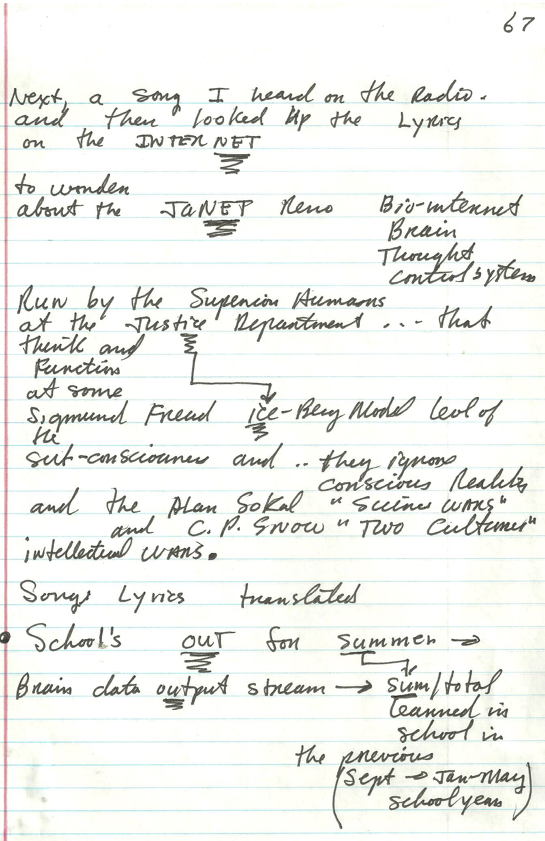 67
Next, a song I heard on the Radio.
and then looked up the Lyrics
on the INTERNET
to wonder
about the JaNET Reno Bio-internet
Brain
Thought
control system
Run by the Superior Humans
at the Justice Department ... that
think and
Function
at some
Sigmund Freud ice-Berg Model level of
the
sub-consciousness and .. they ignore
conscious Reality
and the Alan Sokal "Science WARS"
and C. P. Snow "Two Cultures"
intellectual WARS.
Songs Lyrics translated
• School's OUT for summer →
Brain data output stream → sum/total
learned in
school in
the previous
(Sept → Jan-May
school year)